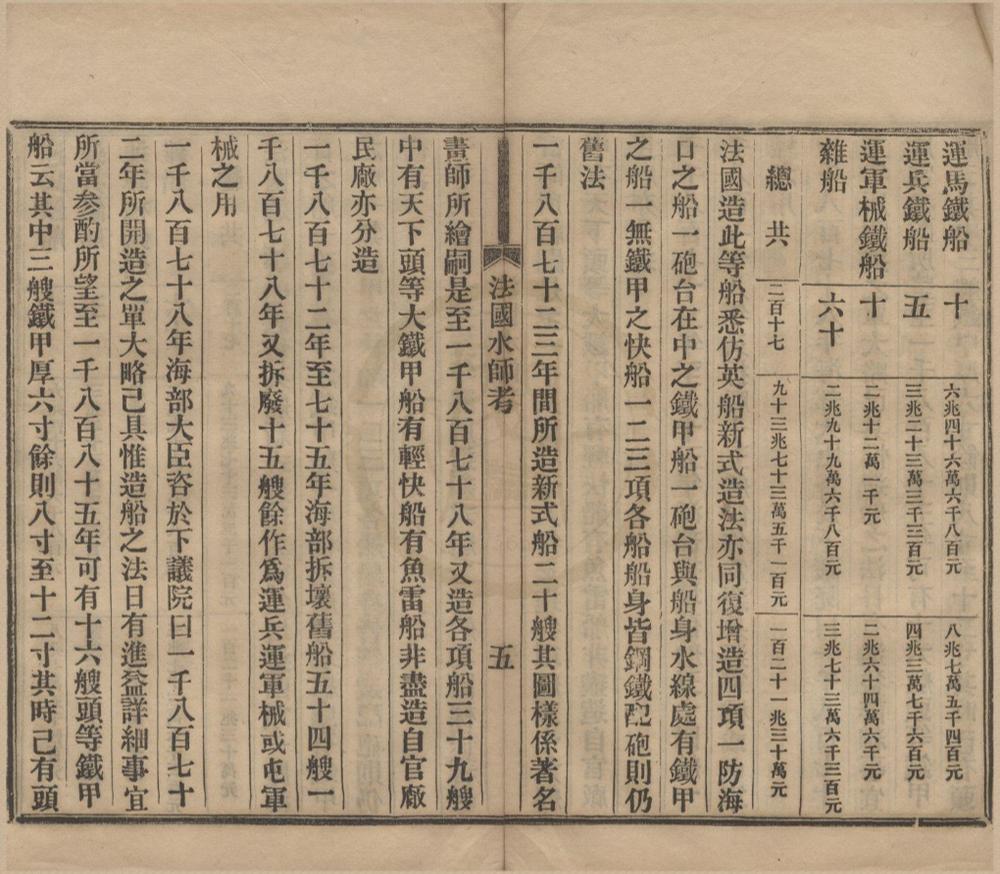 運馬鐵船 十 六兆四十六萬六千八百元 八兆七萬五千四百元
運兵鐵船 五 三兆二十三萬三千三百元 四兆三萬七千六百元
運軍械鐵船 十 二兆十二萬一千元 二兆六十四萬六千元
雜船 六十 二兆九十九萬六千八百元 三兆七十三萬六千三百元
總共 二百十七 九十三兆七十三萬五千一百元 一百二十一兆三十萬元
法國造此等船悉仿英船新式造法亦同復增造四項一防海
口之船一砲台在中之鐵甲船一砲台與船身水線處有鐵甲
之船一無鐵甲之快船一二三項各船船身皆鋼鐵配砲則仍
舊法
一千八百七十二三年間所造新式船二十艘其圖樣係著名
法國水師考 五
畫師所繪嗣是至一千八百七十八年又造各項船三十九艘
中有天下頭等大鐵甲船有輕快船有魚雷船非盡造自官廠
民廠亦分造
一千八百七十二年至七十五年海部拆壞舊船五十四艘一
千八百七十八年又拆廢十五艘餘作爲運兵運軍械或屯軍
械之用
一千八百七十八年海部大臣咨於下議院曰一千八百七十
二年所開造之單大略己具惟造船之法日有進益詳細事宜
所當參酌所望至一千八百八十五年可有十六艘頭等鐵甲
船云其中三艘鐵甲厚六寸餘則八寸至十二寸其時己有頭